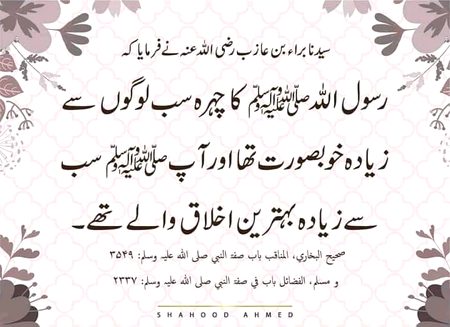 سیدنا براء بن عازب رضی اللہ عنہ نے فرمایا کہ
رسول اللہ ﷺ کا چہرہ سب لوگوں سے
زیادہ خوبصورت تھا اور آپ ﷺ سب
سے زیادہ بہترین اخلاق والے تھے۔
صحیح البخاري، المناقب باب صفۃ النبي صلی اللہ علیہ وسلم: ۳۵۴۹
و مسلم، الفضائل باب في صفۃ النبي صلی اللہ علیہ وسلم: ۲۳۳۷
SHAHOOD AHMED